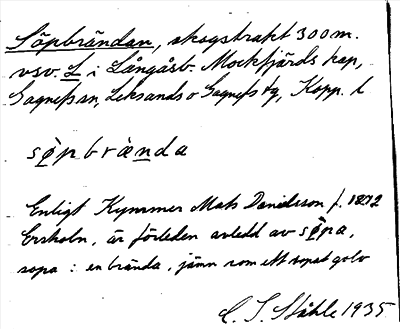 Söpbrändan, skogstrakt 300 m.
vsv. L i Långåsb. Mockfjärds kap,
Gagnefs sn, Leksands o Gagnefs tg, Kopp. l
söpbrända
Enligt Kymmer Mats Danielsson f. 1872
, är förleden avledd av söpa,
sopa : en brända, jämn som ett sopat golv
C. I. Ståhle 1935